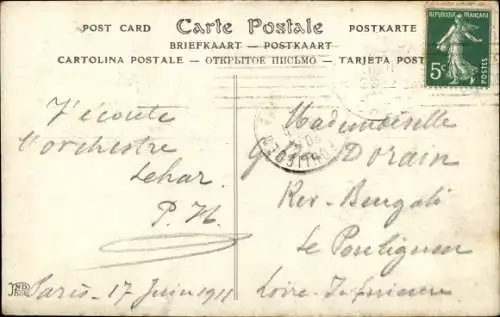 POST CARD
Carte Postale
POSTKARTE
BRIEFKAART — POSTKAART
CARTOLINA POSTALE — ОТКРЫТОЕ ПИСЬМО — TARJETA POST
RÉPUBLIQUE FRANÇAISE
5c
POSTES
J'écoute
l'orchestre
Lehar
P. H.
Paris 17 Juin 1911
Mademoiselle
G. Dorain
Ker-Bengali
le Pouliguen
Loire-Inférieure
LE POULIGUEN